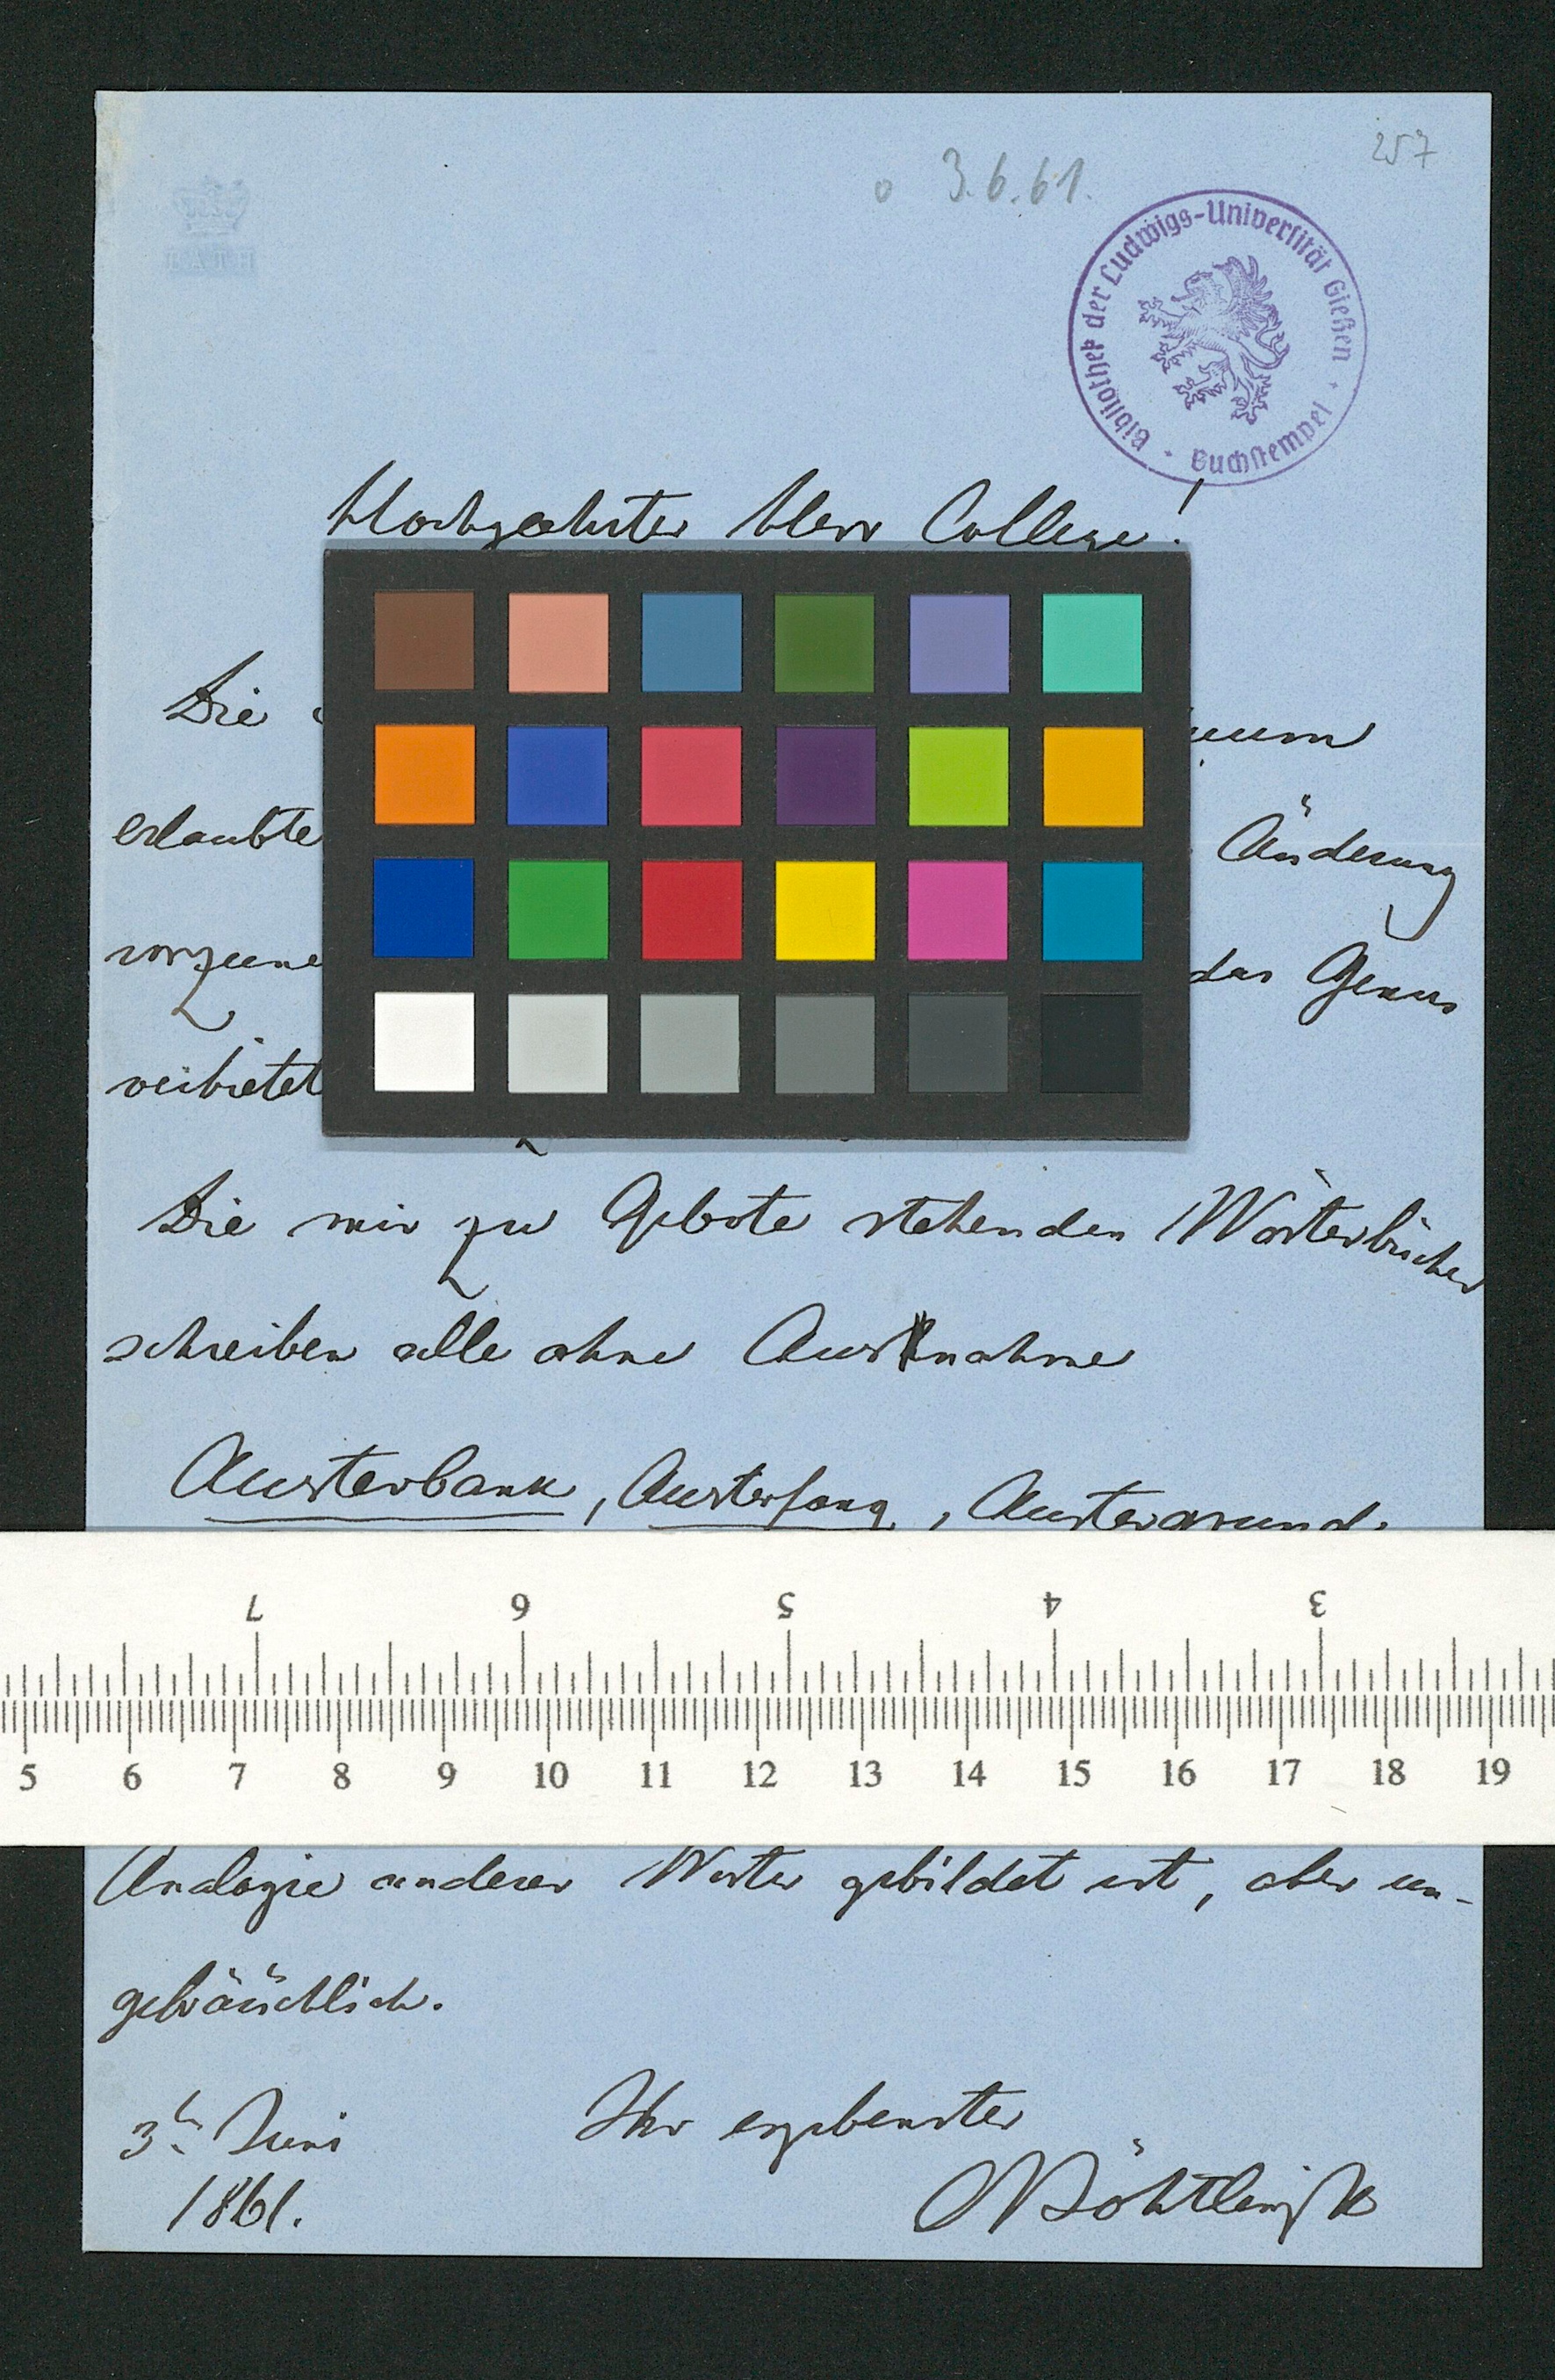 257
o 3.6.61.
Bibliothek der Ludwigs-Universität Gießen · Buchstempel ·
Hochgeehrter Herr College!
Die
erlaubte Änderung
vorzune das Genus
verbietet
Die mir zu Gebote stehenden Wörterbücher
schreiben alle ohne Ausnahme
Austerbank, Austerfang, Austergrund,
7 6 5 4 3
5 6 7 8 9 10 11 12 13 14 15 16 17 18 19
Analogie anderer Wörter gebildet ist, aber un-
gebräuchlich.
3ⁿ Juni Ihr ergebenster
1861. OBöhtlingk